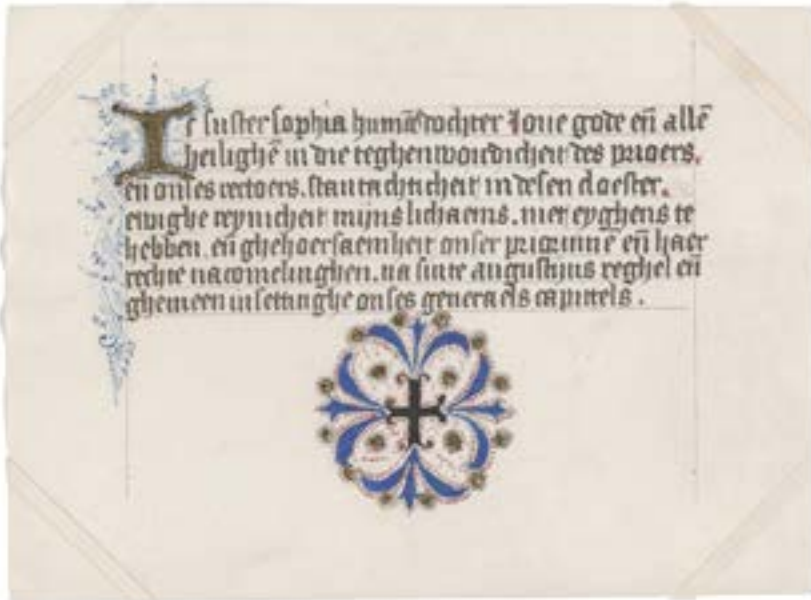 Ic suster sophia humēdochter Loue gode eñ allē
heilighē in die teghenwoirdicheit des prioers,
eñ onses rectoers. stantachticheit in desen cloester.
ewighe reynicheit mijns lichaems. niet eyghens te
hebben. eñ ghehoersaemheit onser priorinnē eñ haer
rechte nacomelinghen. na sinte augustijns reghel eñ
ghemeen insettinghe onses generaels capittels.